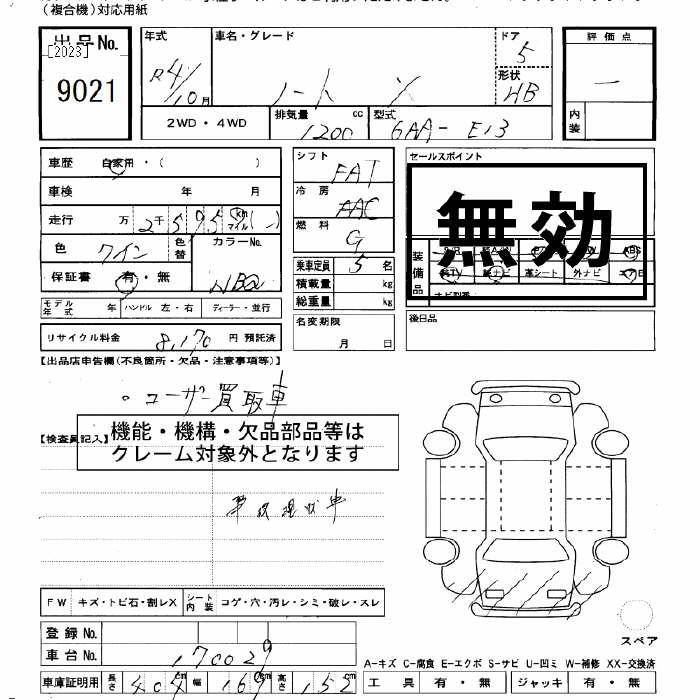 (複合機)対応用紙
出品No.
[2023]
9021
年式
R4/10月
車名・グレード
ノート X
ドア
5
形状
HB
評価点
内装
2WD・4WD
排気量 1200 cc
型式 6AA-E13
車歴 自家用・( )
車検 年 月
走行 万 2千5975 km マイル( )
色 ワイン 色替 カラーNo. NBQ
保証書 有・無
モデル年式 年 ハンドル 左・右 ディーラー・並行
リサイクル料金 8,170 円 預託済
シフト FAT
冷房 AAC
燃料 G
乗車定員 5 名
積載量 kg
総重量 kg
名変期限
月 日
セールスポイント
無効
装備品
ABS
革シート 外ナビ
ナビ型番
後日品
【出品店申告欄(不良箇所・欠品・注意事項等)】
・ユーザー買取車
【検査員記入】
機能・機構・欠品部品等は
クレーム対象外となります
事故現状車
FW キズ・トビ石・割レX シート内装 コゲ・穴・汚レ・シミ・破レ・スレ
登録No.
車台No. 170029
車庫証明用 長さ 404 cm 幅 169 cm 高さ 152 cm
スペア
A-キズ C-腐食 E-エクボ S-サビ U-凹ミ W-補修 XX-交換済
工具 有・無 ジャッキ 有・無